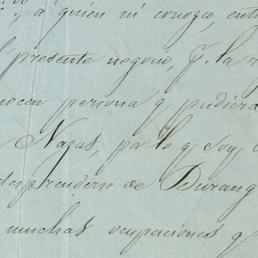 , á quien ni conozco, ent
l presente negocio, y la
nocen persona q pudiera
Nazas, por lo q soy
desprenderse de Durang
muchas ocupaciones q